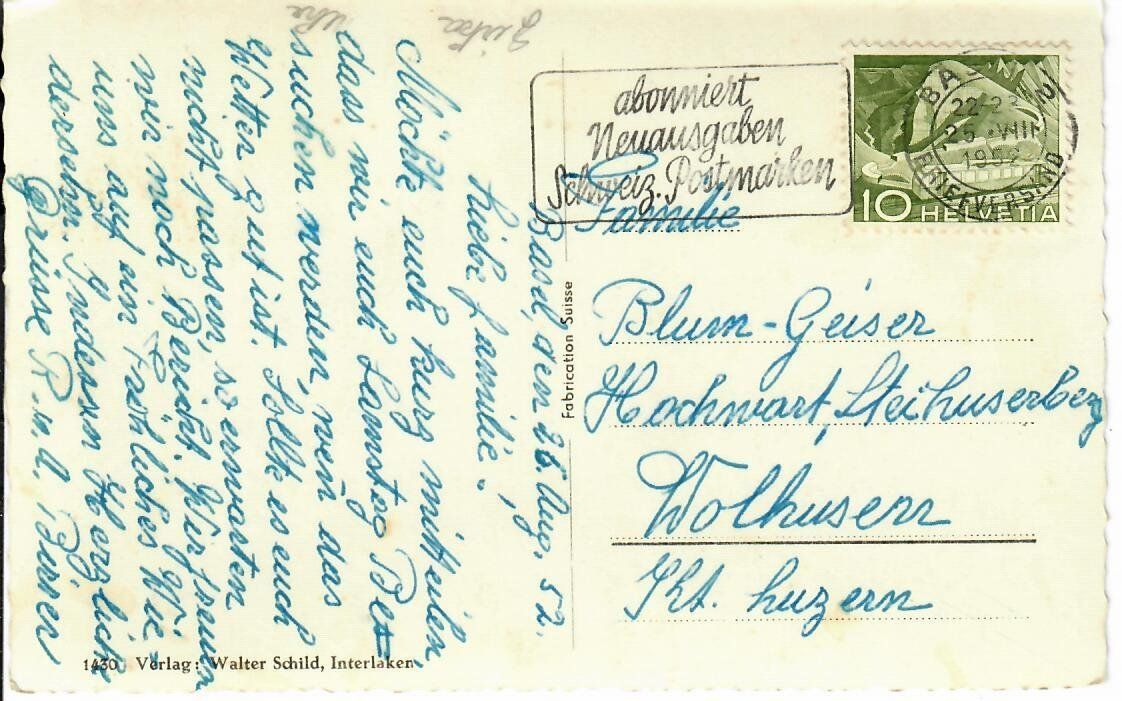 Basel, den 26. Aug. 52.
Liebe Familie!
Möchte euch kurz mitteilen
dass wir euch Samstag Be-
suchen werden, wen̄ das
Wetter gut ist. Sollte es euch
nicht passen, so erwarten
wir noch Bericht. Wir freuen
uns auf ein Fröhliches Wie-
dersehn. Indessen Herzliche
Grüsse R. u. A.
abonniert
Neuausgaben
Schweiz. Postmarken
BASEL 2
22-23
25. VIII
1952
BRIEFVERSAND
10 HELVETIA
Familie
Blum-Geiser
Hochwart, Steihuserberg
Wolhusen
Kt. Luzern
Fabrication Suisse
1430 Verlag: Walter Schild, Interlaken